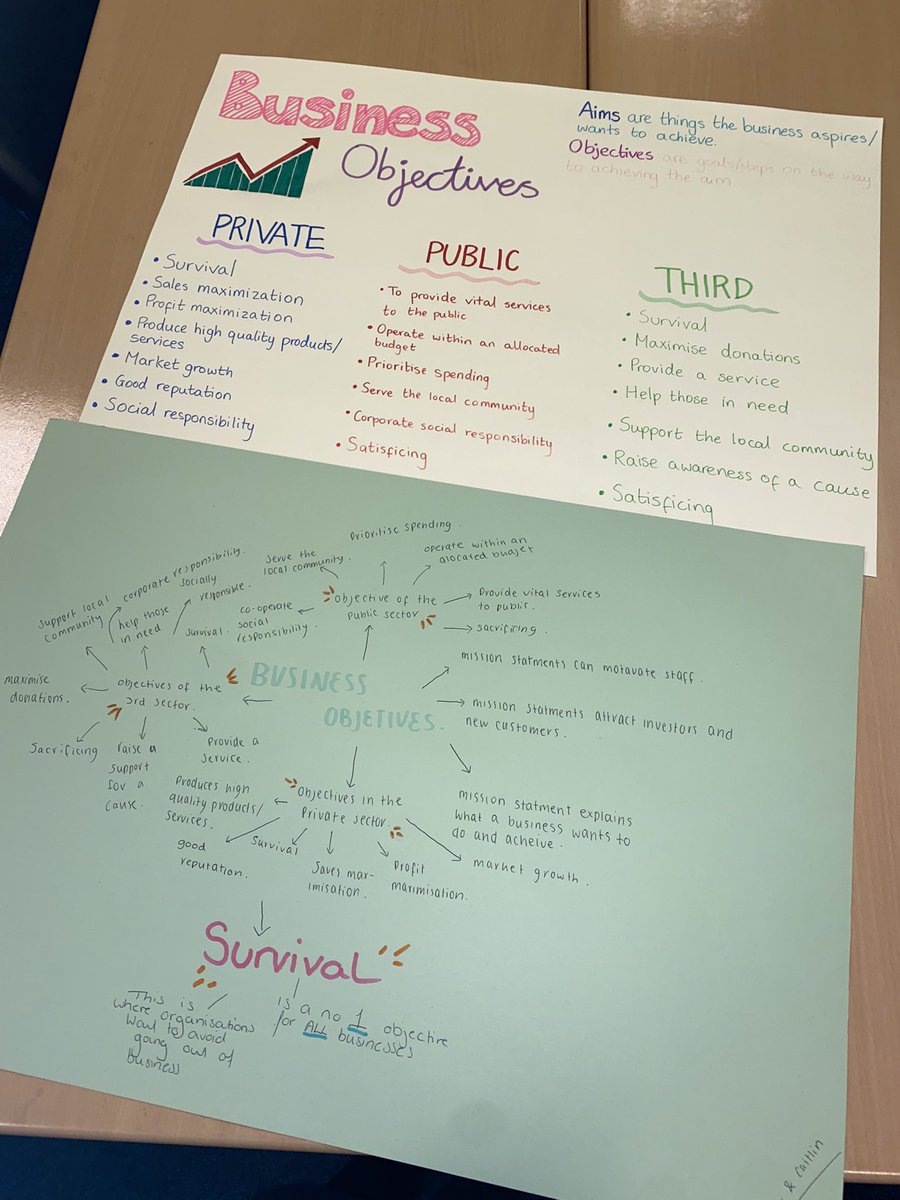 Business
Objectives
Aims are things the business aspires/
wants to achieve.
Objectives are goals/steps on the way
to achieving the aim.
PRIVATE
• Survival
• Sales maximization
• Profit maximization
• Produce high quality products/
services
• Market growth
• Good reputation
• Social responsibility
PUBLIC
• To provide vital services
to the public
• Operate within an allocated
budget
• Prioritise spending
• Serve the local community
• Corporate social responsibility
• Satisficing
THIRD
• Survival
• Maximise donations
• Provide a service
• Help those in need
• Support the local community
• Raise awareness of a cause
• Satisficing
BUSINESS
OBJETIVES.
Objective of the
Public sector
Prioritise spending.
operate within an
allocated budget
Provide vital services
to public.
sacrificing.
serve the
local community.
co-operate
social
responsibility.
objectives of the
3rd sector.
support local
community
corporate responsibility.
help those
in need
socially
responsible.
survival.
maximise
donations.
Sacrificing
raise a
support
for a
cause.
Provide a
service.
mission statments can motavate staff.
mission statments attract investors and
new customers.
mission statment explains
what a business wants to
do and acheive.
Objectives in the
Private sector.
Produces high
quality products/
services.
good
reputation.
Survival
Saves max-
imisation.
Profit
maximisation.
market growth.
Survival
This is
where organisations
want to avoid
going out of
business
is a no 1 objective
for ALL businesses
& Caitlin